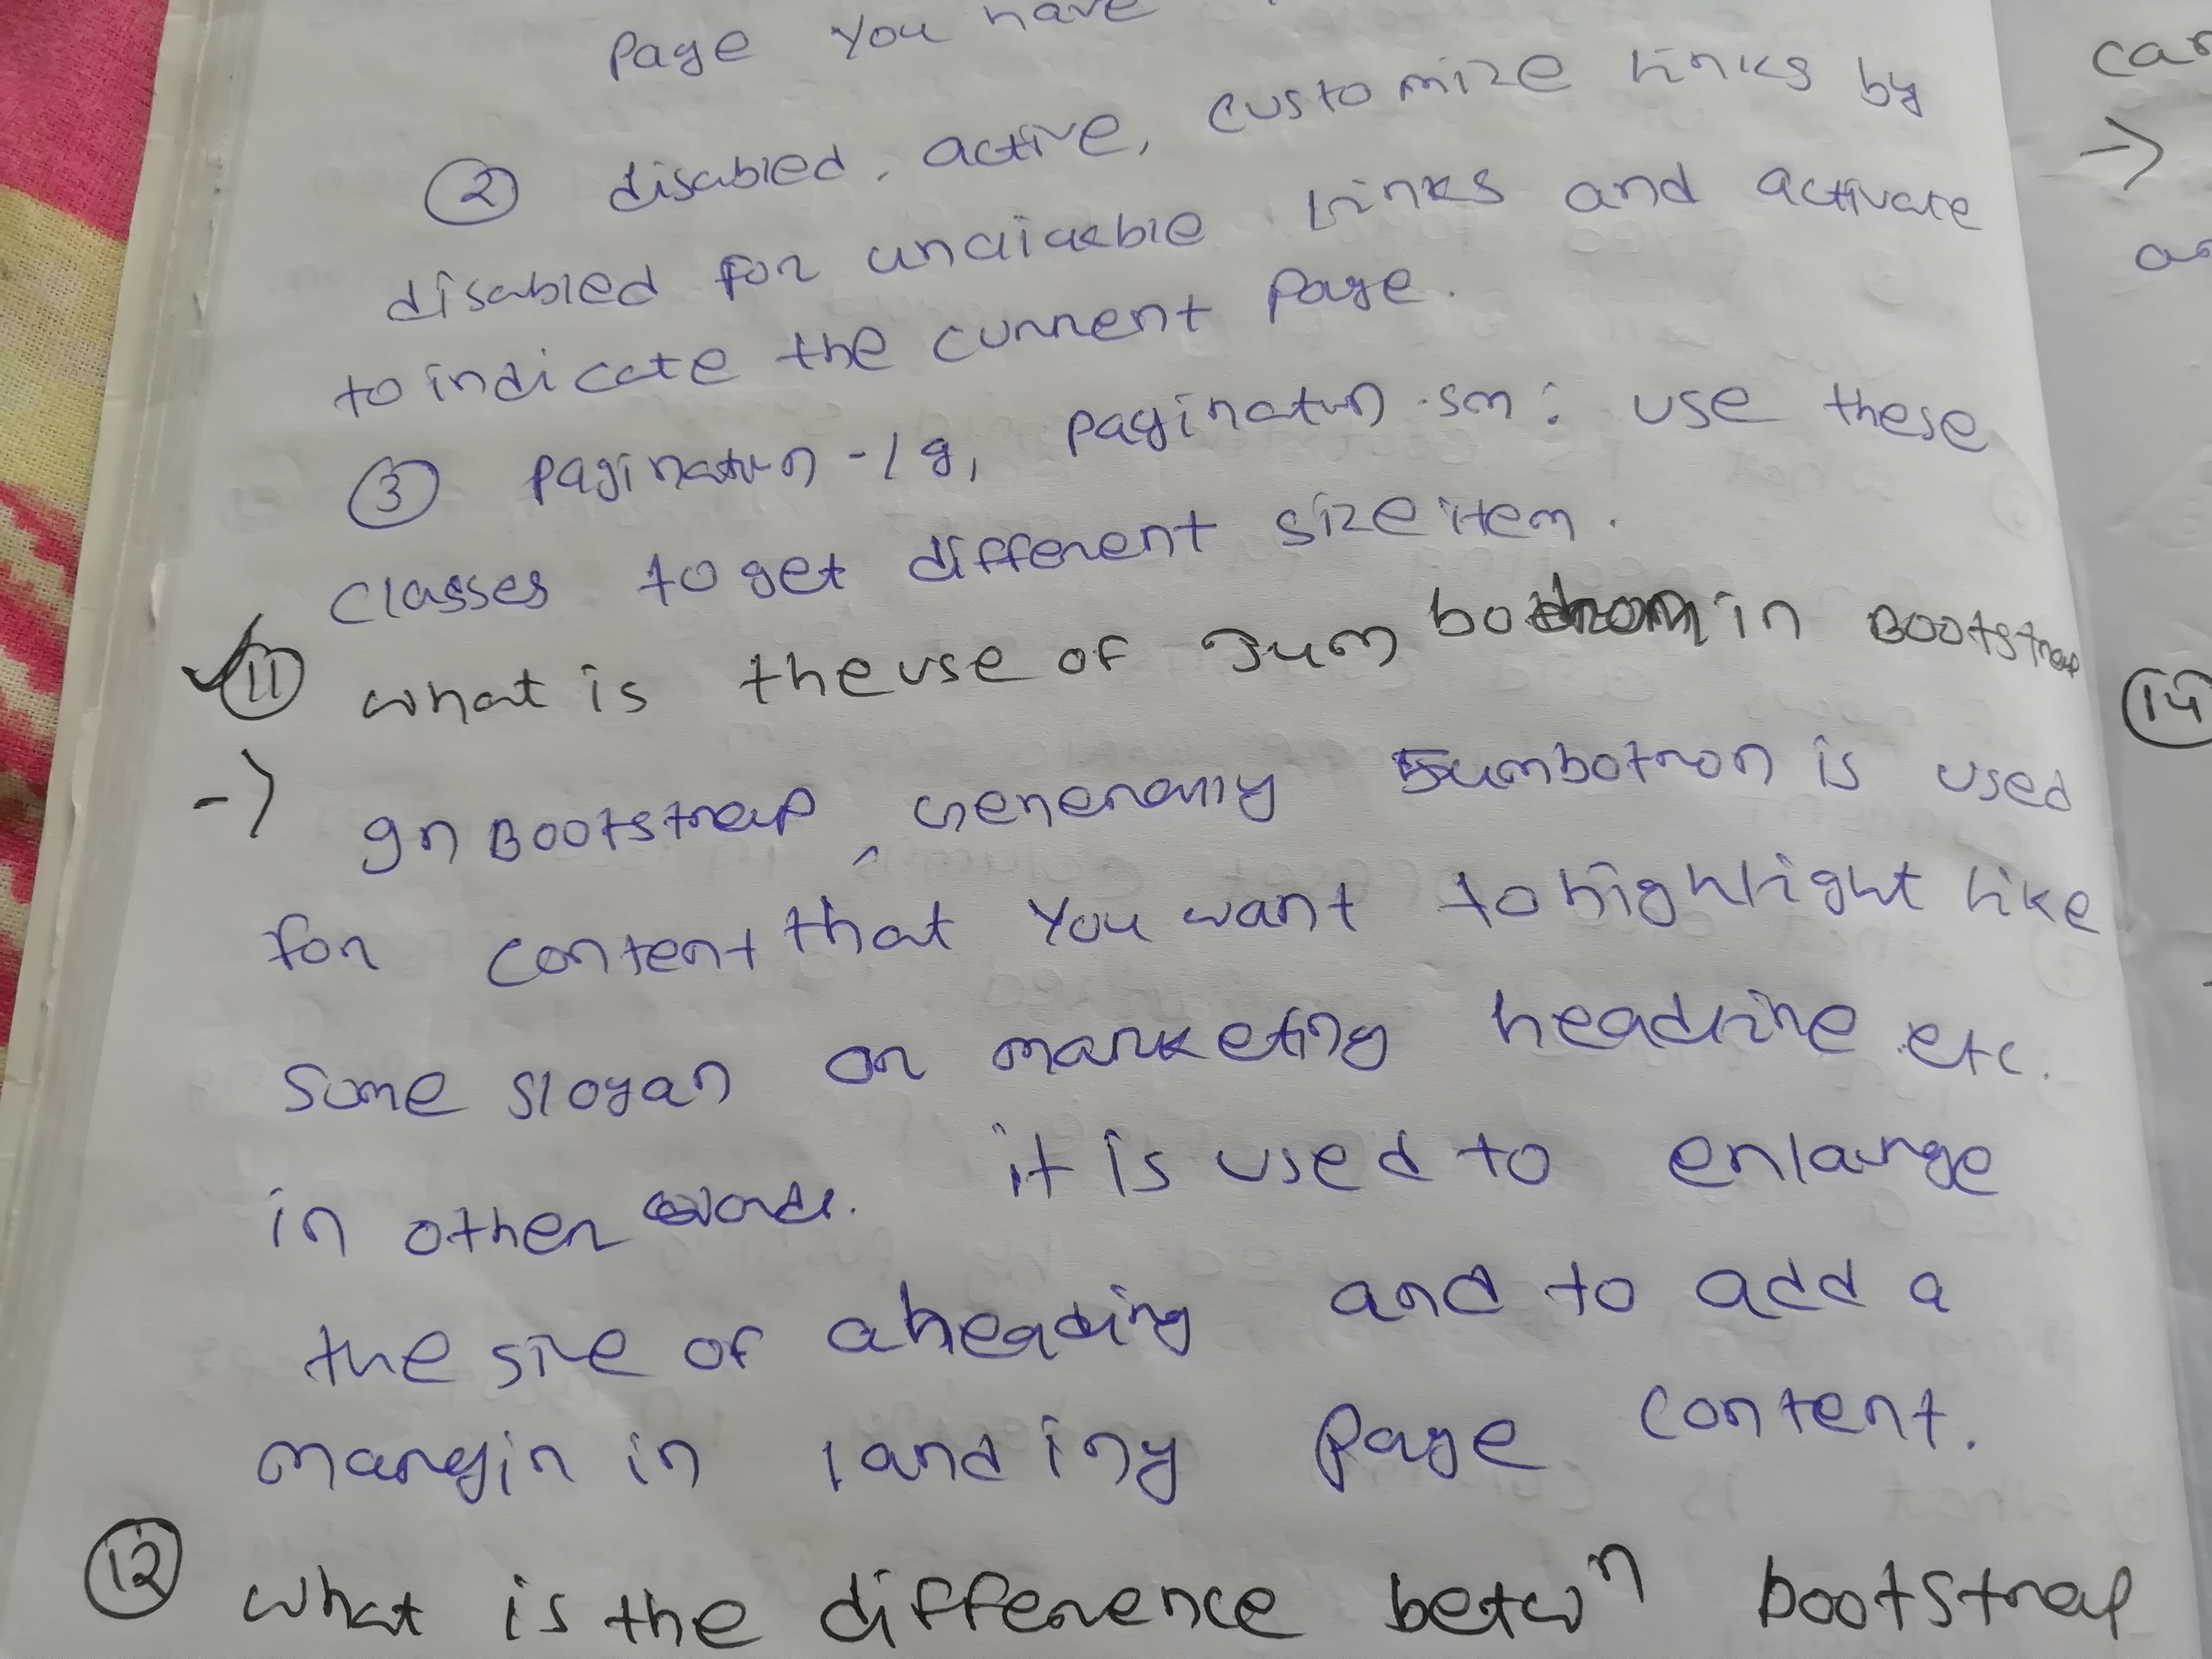 Page you have
② disabled, active, customize links by
disabled for unclickble links and activate
to indicate the current page.
③ pagination-lg, pagination-sm: use these
classes to get different size item.
⑪ what is the use of Jumbotron in Bootstrap
-> In Bootstrap, Generally Jumbotron is used
for content that you want to highlight like
some slogan or marketing headline etc.
in other words. it is used to enlarge
the size of a heading and to add a
margin in landing page content.
⑫ what is the difference betwn bootstrap
->
14